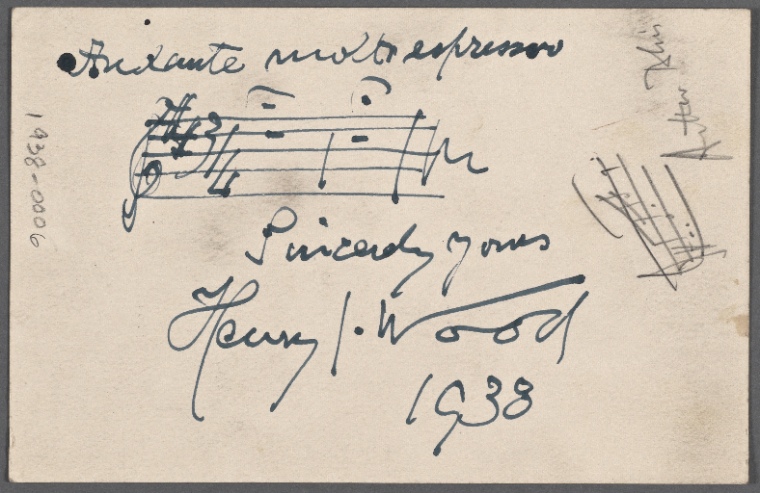 Andante molto espressivo
3/4
Sincerely yours
Henry J. Wood
1938
1938-0006